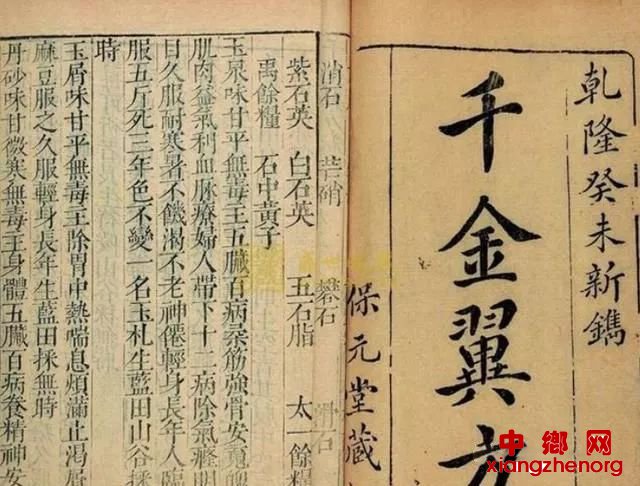 乾隆癸未新鐫
千金翼方
保元堂藏
消石 芒硝 礬石 滑石
紫石英 白石英 五石脂 太一餘糧
禹餘糧 石中黃子
玉泉味甘平無毒主五臟百病柔筋強骨安
肌肉益氣利血脉療婦人帶下十二病除氣癃明
目久服耐寒暑不饑渴不老神僊輕身長年人臨
服五斤死三年色不變一名玉札生藍田山谷採
時
玉屑味甘平無毒主除胃中熱喘息煩滿止渴屑
麻豆服之久服輕身長年生藍田採無時
丹砂味甘微寒無毒主身體五臟百病養精神安
中鄉网
xiangzhenorg